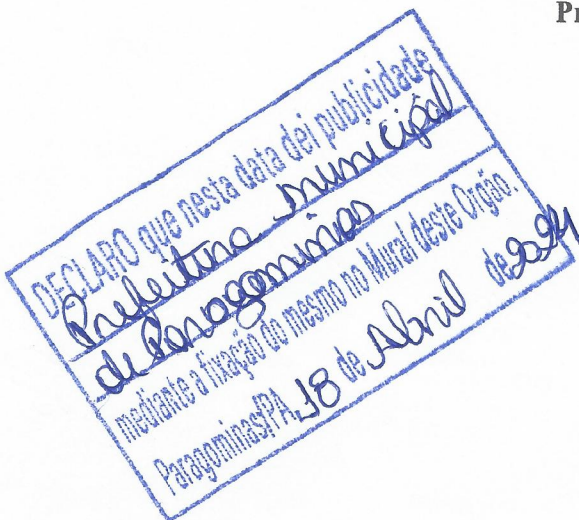 Pr
DECLARO que nesta data dei publicidade
Prefeitura Municipal
de Paragominas
mediante a fixação do mesmo no Mural deste Orgão.
Paragominas/PA, 18 de Abril de 2024